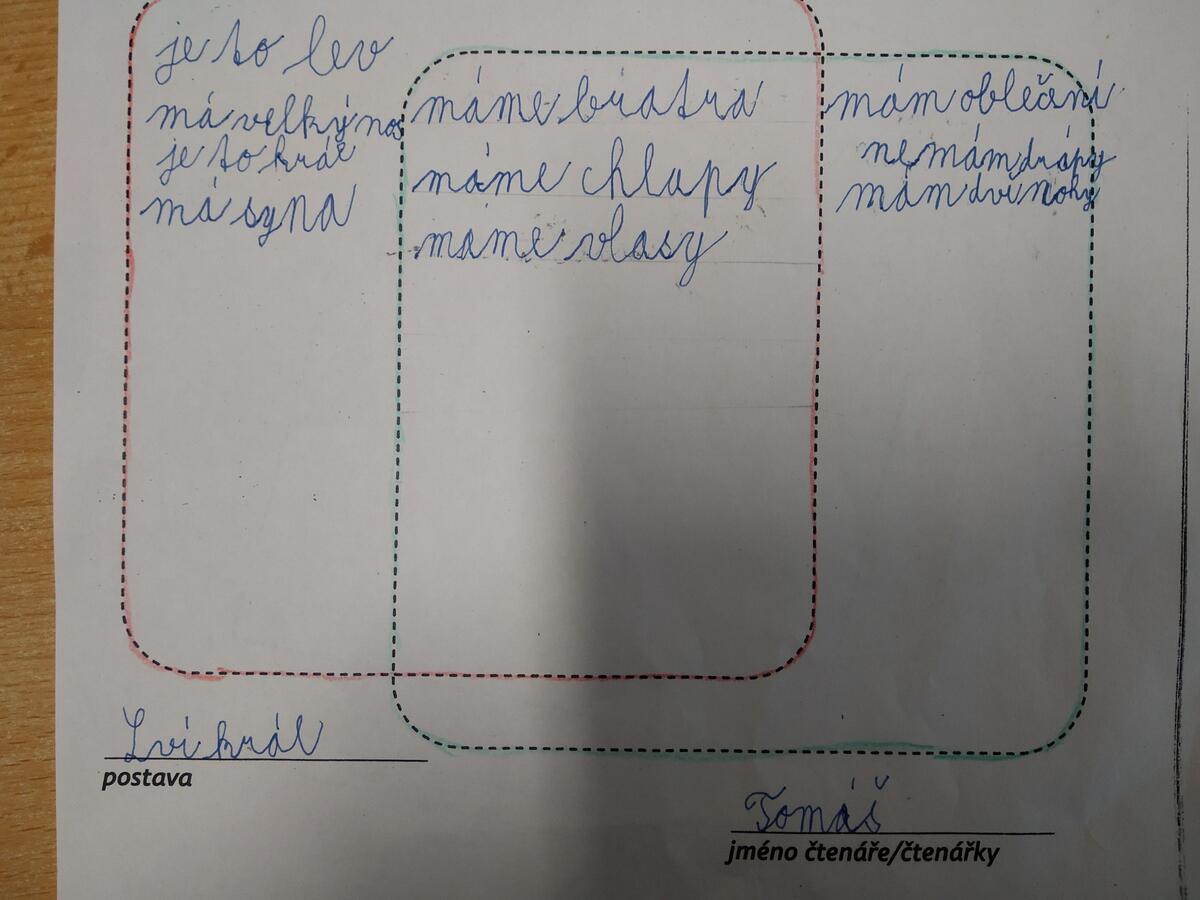 je to lev
má velký nos
je to král
má syna
máme bratra
máme chlupy
máme vlasy
mám oblečení
nemám drápy
mám dvě nohy
Lví král
postava
Tomáš
jméno čtenáře/čtenářky